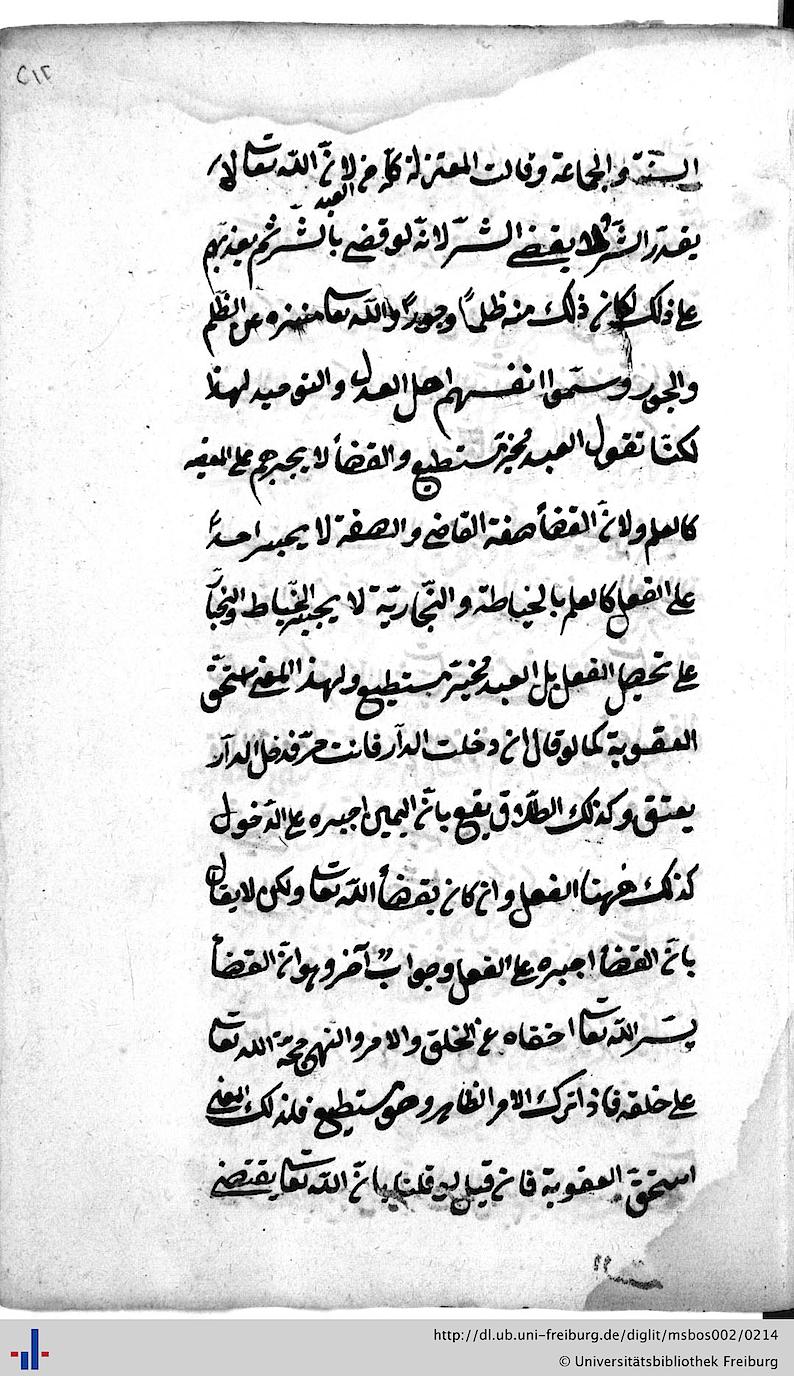 ٢١٢
السنة والجماعة وقالت المعتزلة كلهم لانّ الله تعا لا
يقدر الشر ولا يقضے الشرّ لانه لو قضے بالشر ثم يعذبهم
العبد
على ذلك لكان ذلك منه ظلماً وجوراً والله تعا منزه عن الظلم
والجور وسمّوا انفسهم اهل العدل والتوحيد لهذا
لكنّا نقول العبد مخير مستطيع والقضأ لا يجبرهم على
كالعلم ولانّ القضأ صفة القاضے والصفة لا يجبر احداً
على الفعل كالعلم بالخياطة والنّجاريّة لا يجبر الخيّاط والنجّار
على تحصيل الفعل بل العبد مخيّر مستطيع ولهذا المعنے يستحقّ
العقوبة كما لو قال ان دخلت الدآر فانت حرّ فدخل الدآر
يعتق وكذلك الطلاق يقع بانّ اليمين اجبره على الدّخول
كذلك ههنا الفعل وان كان بقضأ الله تعا ولكن لا يقال
بانّ القضأ اجبره على الفعل وجواب آخر وهو انّ القضأ
سر الله تعا اخفاه عن الخلق والامر والنهى حجّة الله تعا
على خلقه فاذا ترك الامر الظاهر وهو مستطيع فلذلك المعنے
استحقّ العقوبة فان قيل لو قلنا بانّ الله تعا يقتضے
http://dl.ub.uni-freiburg.de/diglit/msbos002/0214
© Universitätsbibliothek Freiburg